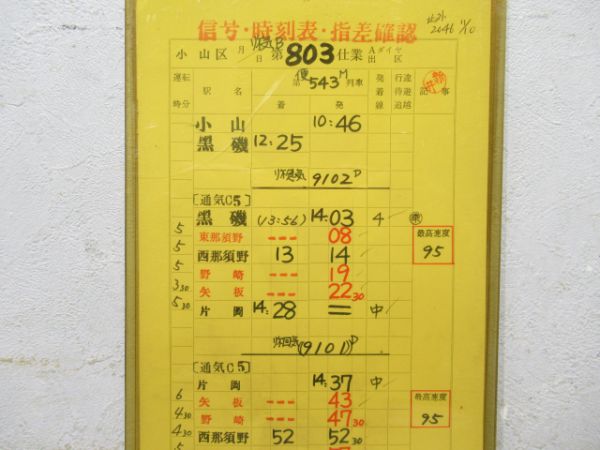 信号・時刻表・指差確認
2046 11/10
小山区 月 日 第803仕業 Aダイヤ出区
運転時分 駅名 便 第543M列車 着 発 発着線 行違待避追越 記事
小山 10:46
黒磯 12:25
9102D
〔通気C5〕
黒磯 (13:56) 14:03 4
5 東那須野 --- 08 最高速度
5 西那須野 13 14 95
5 野崎 --- 19
3 30 矢板 --- 22 30
5 30 片岡 14:28 = 中
(9101)D
〔通気C5〕
片岡 14:37 中
6 矢板 --- 43 最高速度
4 30 野崎 --- 47 30 95
4 30 西那須野 52 52 30
5